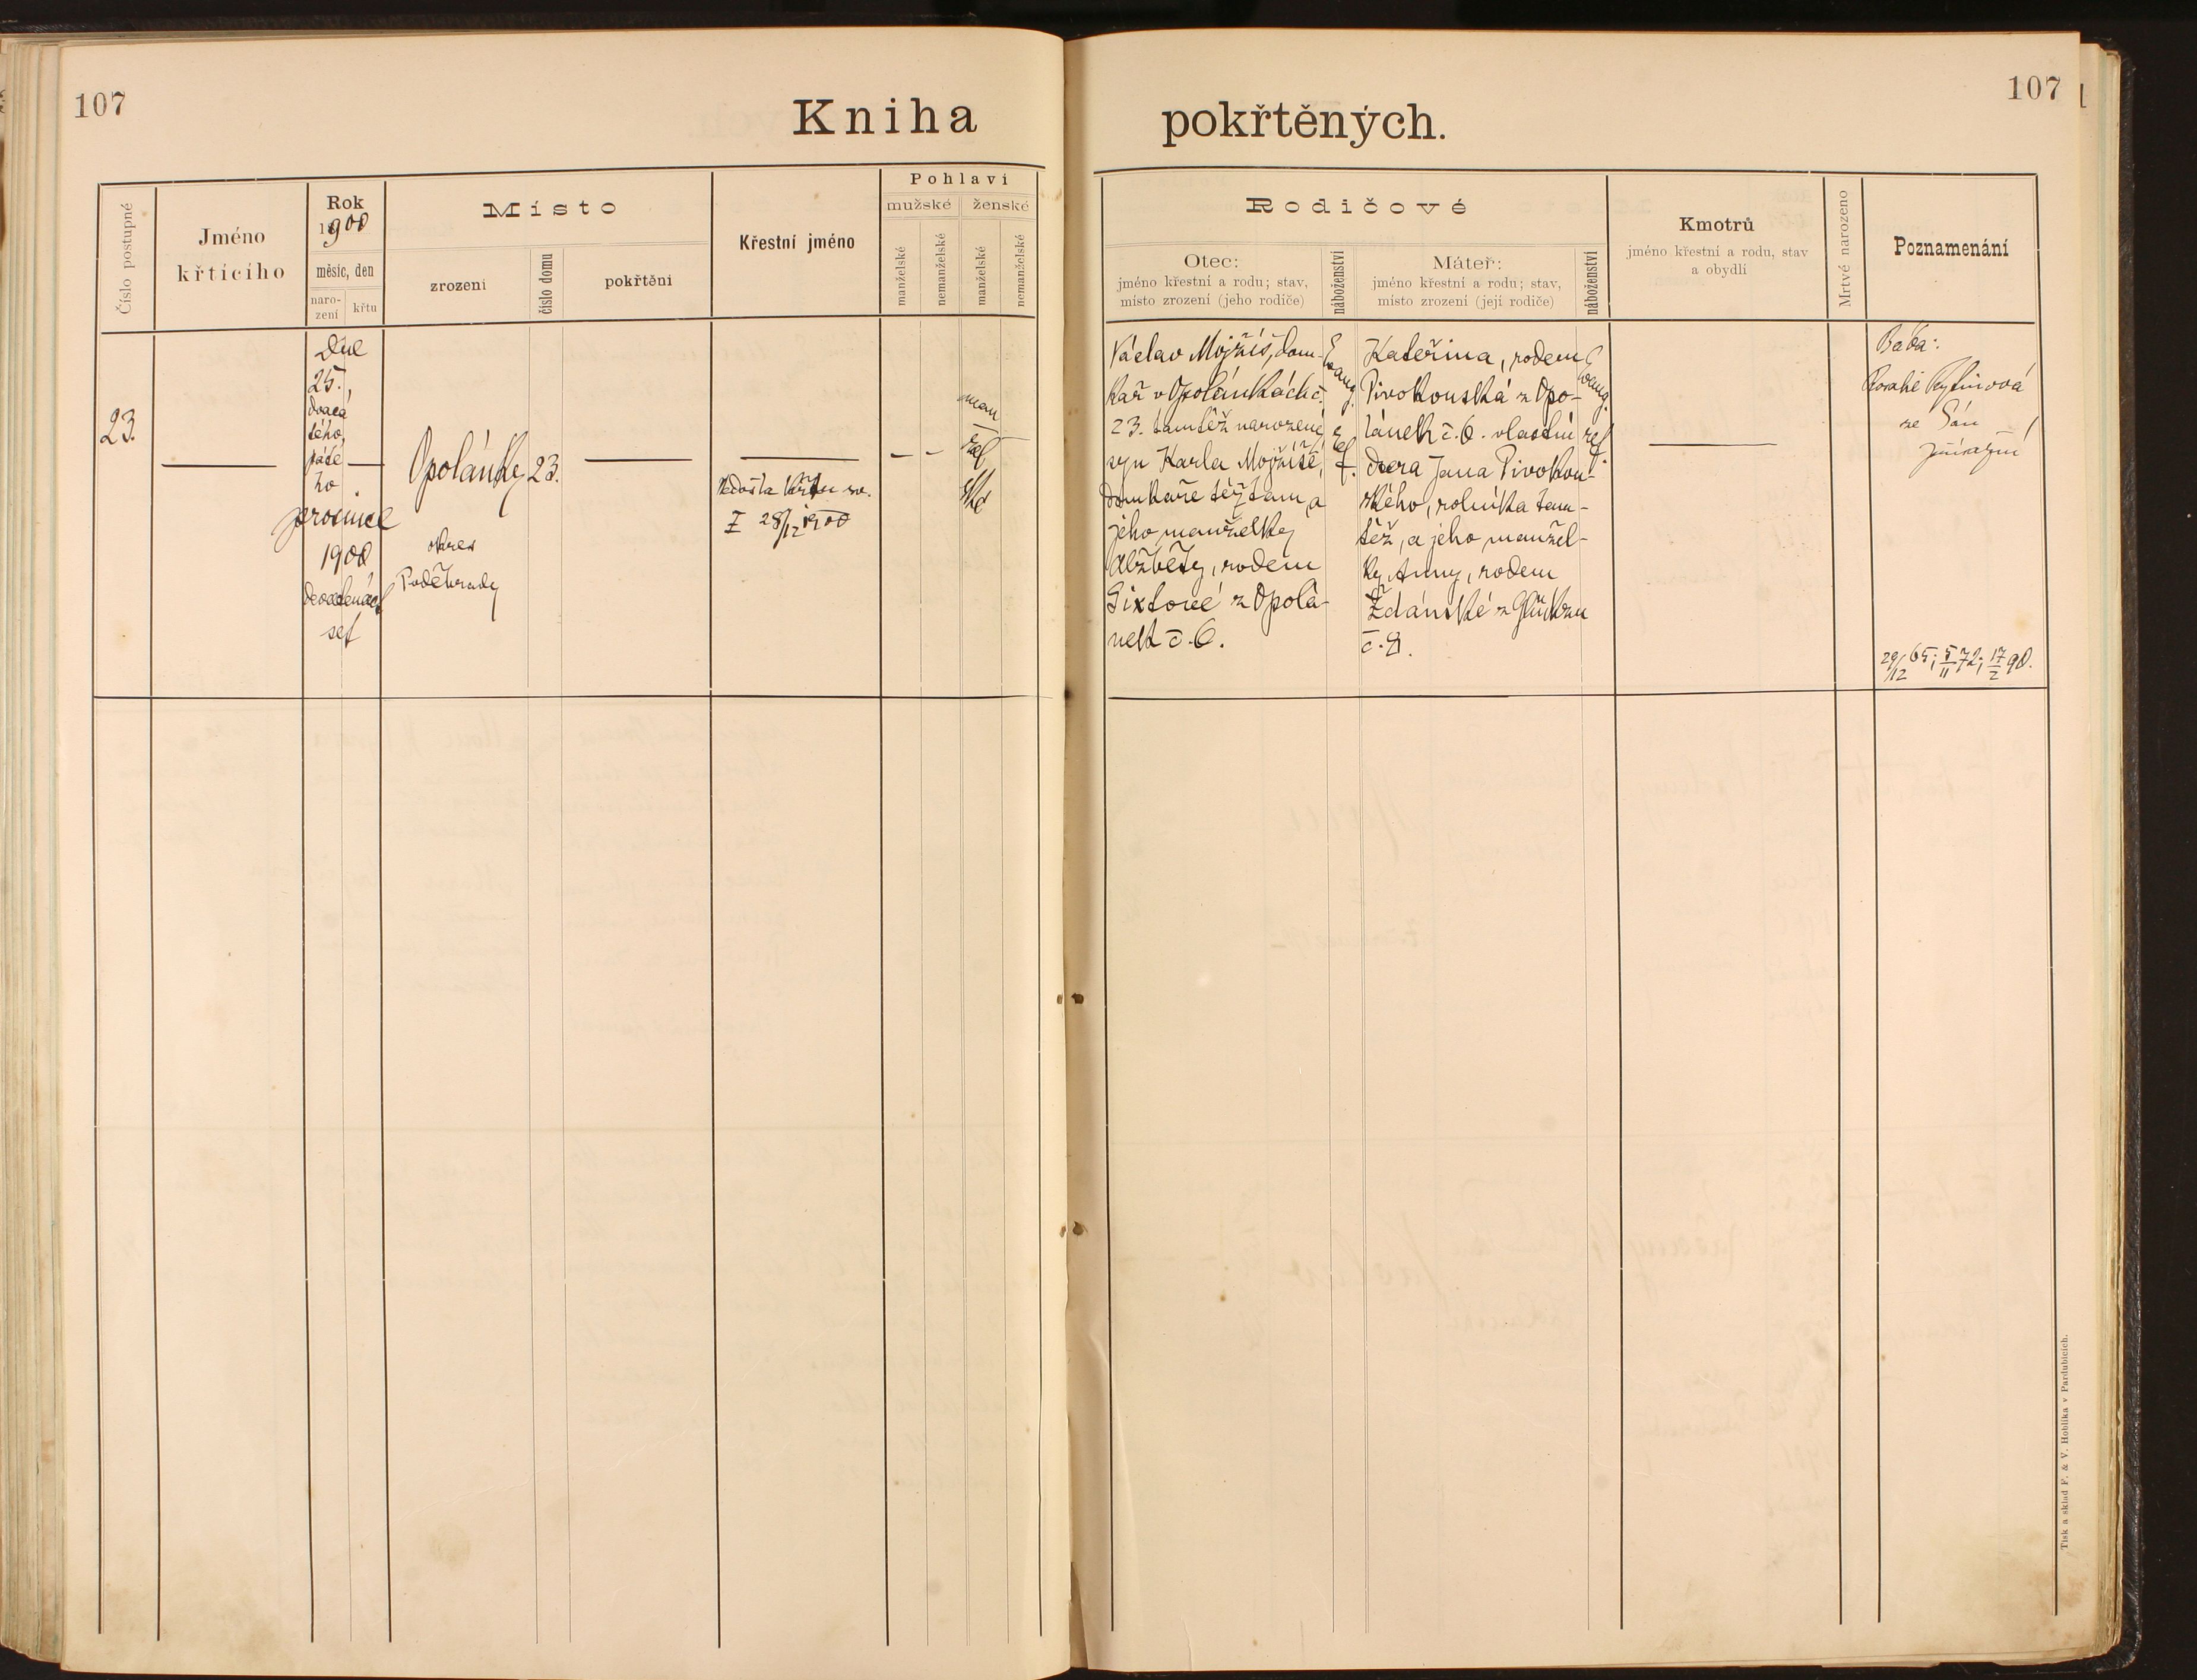 107
107
Kniha pokřtěných.
Číslo postupné
Jméno
křtícího
Rok
1900
měsíc, den
naro-
zení
křtu
Místo
zrození
číslo domu
pokřtění
Křestní jméno
Pohlaví
mužské
ženské
manželské
nemanželské
manželské
nemanželské
Rodičové
Otec:
jméno křestní a rodu; stav,
místo zrození (jeho rodiče)
náboženství
Máteř:
jméno křestní a rodu; stav,
místo zrození (její rodiče)
náboženství
Kmotrů
jméno křestní a rodu, stav
a obydlí
Mrtvě narozeno
Poznamenání
23.
Dne
25.,
dvacá
tého
páté
ho
prosince
1900
devatenáct
set
Opolánky
okres
Poděbrady
23.
Nedošla křtu sv.
28/12 1900
man
žel
ské
Václav Mojžíš, dom-
kař v Opolánkách č.
23. tamtéž narozený,
syn Karla Mojžíše,
domkaře též tam, a
jeho manželky
Alžběty, rodem
Sixtové z Opolá-
nek č. 6.
Evang.
ref.
Kateřina, rodem
Pivokonská z Opo-
lánek č. 6. vlastní
dcera Jana Pivokon-
ského, rolníka tam-
též, a jeho manžel-
ky Anny, rodem
Ždánské z
č. 8.
Evang.
ref.
Bába:
ze Sán
29/12 65; 5/11 72; 17/2 90.
Tisk a sklad F. & V. Hoblíka v Pardubicích.